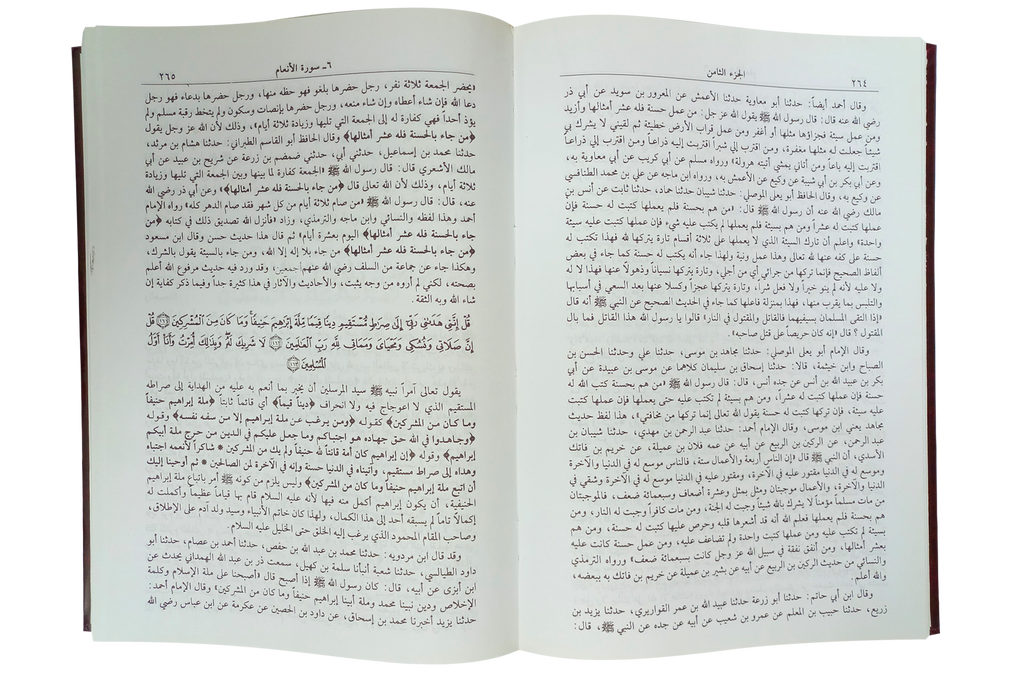 ٢٦٤
الجزء الثامن
وقال أحمد أيضاً: حدثنا أبو معاوية حدثنا الأعمش عن المعرور بن سويد عن أبي ذر
رضي الله عنه قال: قال رسول الله ﷺ يقول الله عز وجل: من عمل حسنة فله عشر أمثالها وأزيد
ومن عمل سيئة فجزاؤها مثلها أو أغفر ومن عمل قراب الأرض خطيئة ثم لقيني لا يشرك بي
شيئاً جعلت له مثلها مغفرة، ومن اقترب إلي شبراً اقتربت إليه ذراعاً ومن اقترب إلي ذراعاً
اقتربت إليه باعاً ومن أتاني يمشي أتيته هرولة» ورواه مسلم عن أبي كريب عن أبي معاوية به،
وعن أبي بكر بن أبي شيبة عن وكيع عن الأعمش به، ورواه ابن ماجه عن علي بن محمد الطنافسي
عن وكيع به، وقال الحافظ أبو يعلى الموصلي: حدثنا شيبان حدثنا حماد، حدثنا ثابت عن أنس بن
مالك رضي الله عنه أن رسول الله ﷺ قال: «من هم بحسنة فلم يعملها كتبت له حسنة فإن
عملها كتبت له عشراً ومن هم بسيئة فلم يعملها لم يكتب عليه شيء فإن عملها كتبت عليه سيئة
واحدة» واعلم أن تارك السيئة الذي لا يعملها على ثلاثة أقسام تارة يتركها لله فهذا تكتب له
حسنة على كفه عنها لله تعالى وهذا عمل ونية ولهذا جاء أنه يكتب له حسنة كما جاء في بعض
ألفاظ الصحيح فإنما تركها من جرائي أي من أجلي، وتارة يتركها نسياناً وذهولاً عنها فهذا لا له
ولا عليه لأنه لم ينو خيراً ولا فعل شراً، وتارة يتركها عجزاً وكسلا عنها بعد السعي في أسبابها
والتلبس بما يقرب منها، فهذا بمنزلة فاعلها كما جاء في الحديث الصحيح عن النبي ﷺ أنه قال
«إذا التقى المسلمان بسيفيهما فالقاتل والمقتول في النار» قالوا يا رسول الله هذا القاتل فما بال
المقتول ؟ قال «إنه كان حريصاً على قتل صاحبه».
وقال الإمام أبو يعلى الموصلي: حدثنا مجاهد بن موسى، حدثنا علي وحدثنا الحسن بن
الصباح وابن خيثمة، قالا: حدثنا إسحاق بن سليمان كلاهما عن موسى بن عبيدة عن أبي
بكر بن عبيد الله بن أنس عن جده أنس، قال: قال رسول الله ﷺ «من هم بحسنة كتب الله له
حسنة فإن عملها كتبت له عشراً، ومن هم بسيئة لم تكتب عليه حتى يعملها فإن عملها كتبت
عليه سيئة، فإن تركها كتبت له حسنة يقول الله تعالى إنما تركها من مخافتي»، هذا لفظ حديث
مجاهد يعني ابن موسى، وقال الإمام أحمد: حدثنا عبد الرحمن بن مهدي، حدثنا شيبان بن
عبد الرحمن، عن الركين بن الربيع عن أبيه عن عمه فلان بن عميلة، عن خريم بن فاتك
الأسدي، أن النبي ﷺ قال «إن الناس أربعة والأعمال ستة، فالناس موسع له في الدنيا والآخرة
وموسع له في الدنيا مقتور عليه في الآخرة، ومقتور عليه في الدنيا موسع له في الآخرة وشقي في
الدنيا والآخرة، والأعمال موجبتان ومثل بمثل وعشرة أضعاف وسبعمائة ضعف، فالموجبتان
من مات مسلماً مؤمناً لا يشرك بالله شيئاً وجبت له الجنة، ومن مات كافراً وجبت له النار، ومن
هم بحسنة فلم يعملها فعلم الله أنه قد أشعرها قلبه وحرص عليها كتبت له حسنة، ومن هم
بسيئة لم تكتب عليه ومن عملها كتبت واحدة ولم تضاعف عليه، ومن عمل حسنة كانت عليه
بعشر أمثالها، ومن أنفق نفقة في سبيل الله عز وجل كانت بسبعمائة ضعف» ورواه الترمذي
والنسائي من حديث الركين بن الربيع عن أبيه عن بشير بن عميلة عن خريم بن فاتك به ببعضه،
والله أعلم.
وقال ابن أبي حاتم: حدثنا أبو زرعة حدثنا عبيد الله بن عمر القواريري، حدثنا يزيد بن
زريع، حدثنا حبيب بن المعلم عن عمرو بن شعيب عن أبيه عن جده عن النبي ﷺ، قال:
٦ـ سورة الأنعام
٢٦٥
«يحضر الجمعة ثلاثة نفر، رجل حضرها بلغو فهو حظه منها، ورجل حضرها بدعاء فهو رجل
دعا الله فإن شاء أعطاه وإن شاء منعه، ورجل حضرها بإنصات وسكون ولم يتخط رقبة مسلم ولم
يؤذ أحداً فهي كفارة له إلى الجمعة التي تليها وزيادة ثلاثة أيام»، وذلك لأن الله عز وجل يقول
﴿من جاء بالحسنة فله عشر أمثالها﴾ وقال الحافظ أبو القاسم الطبراني: حدثنا هشام بن مرثد،
حدثنا محمد بن إسماعيل، حدثني أبي، حدثني ضمضم بن زرعة عن شريح بن عبيد عن أبي
مالك الأشعري قال: قال رسول الله ﷺ «الجمعة كفارة لما بينها وبين الجمعة التي تليها وزيادة
ثلاثة أيام، وذلك لأن الله تعالى قال ﴿من جاء بالحسنة فله عشر أمثالها﴾» وعن أبي ذر رضي الله
عنه، قال: قال رسول الله ﷺ «من صام ثلاثة أيام من كل شهر فقد صام الدهر كله» رواه الإمام
أحمد وهذا لفظه والنسائي وابن ماجه والترمذي، وزاد «فأنزل الله تصديق ذلك في كتابه ﴿من
جاء بالحسنة فله عشر أمثالها﴾ اليوم بعشرة أيام» ثم قال هذا حديث حسن وقال ابن مسعود
﴿من جاء بالحسنة فله عشر أمثالها﴾ من جاء بلا إله إلا الله، ومن جاء بالسيئة يقول بالشرك،
وهكذا جاء عن جماعة من السلف رضي الله عنهم أجمعين، وقد ورد فيه حديث مرفوع الله أعلم
بصحته، لكني لم أروه من وجه يثبت، والأحاديث والآثار في هذا كثيرة جداً وفيما ذكر كفاية إن
شاء الله وبه الثقة.
قُلْ إِنَّنِي هَدَانِي رَبِّي إِلَىٰ صِرَاطٍ مُّسْتَقِيمٍ دِينًا قِيَمًا مِّلَّةَ إِبْرَاهِيمَ حَنِيفًا ۚ وَمَا كَانَ مِنَ الْمُشْرِكِينَ ﴿١٦١﴾ قُلْ
إِنَّ صَلَاتِي وَنُسُكِي وَمَحْيَايَ وَمَمَاتِي لِلَّهِ رَبِّ الْعَالَمِينَ ﴿١٦٢﴾ لَا شَرِيكَ لَهُ ۖ وَبِذَٰلِكَ أُمِرْتُ وَأَنَا أَوَّلُ
الْمُسْلِمِينَ ﴿١٦٣﴾
يقول تعالى آمراً نبيه ﷺ سيد المرسلين أن يخبر بما أنعم به عليه من الهداية إلى صراطه
المستقيم الذي لا اعوجاج فيه ولا انحراف ﴿ديناً قيماً﴾ أي قائماً ثابتاً ﴿ملة إبراهيم حنيفاً
وما كان من المشركين﴾ كقوله ﴿ومن يرغب عن ملة إبراهيم إلا من سفه نفسه﴾ وقوله
﴿وجاهدوا في الله حق جهاده هو اجتباكم وما جعل عليكم في الدين من حرج ملة أبيكم
إبراهيم﴾ وقوله ﴿إن إبراهيم كان أمة قانتاً لله حنيفاً ولم يك من المشركين * شاكراً لأنعمه اجتباه
وهداه إلى صراط مستقيم، وآتيناه في الدنيا حسنة وإنه في الآخرة لمن الصالحين * ثم أوحينا إليك
أن اتبع ملة إبراهيم حنيفاً وما كان من المشركين﴾ وليس يلزم من كونه ﷺ أمر باتباع ملة إبراهيم
الحنيفية، أن يكون إبراهيم أكمل منه فيها لأنه عليه السلام قام بها قياماً عظيماً وأكملت له
إكمالاً تاماً لم يسبقه أحد إلى هذا الكمال، ولهذا كان خاتم الأنبياء وسيد ولد آدم على الإطلاق،
وصاحب المقام المحمود الذي يرغب إليه الخلق حتى الخليل عليه السلام.
وقد قال ابن مردويه: حدثنا محمد بن عبد الله بن حفص، حدثنا أحمد بن عصام، حدثنا أبو
داود الطيالسي، حدثنا شعبة أنبأنا سلمة بن كهيل، سمعت ذر بن عبد الله الهمداني يحدث عن
ابن أبزى عن أبيه، قال: كان رسول الله ﷺ إذا أصبح قال «أصبحنا على ملة الإسلام وكلمة
الإخلاص ودين نبينا محمد وملة أبينا إبراهيم حنيفاً وما كان من المشركين» وقال الإمام أحمد:
حدثنا يزيد أخبرنا محمد بن إسحاق، عن داود بن الحصين عن عكرمة عن ابن عباس رضي الله